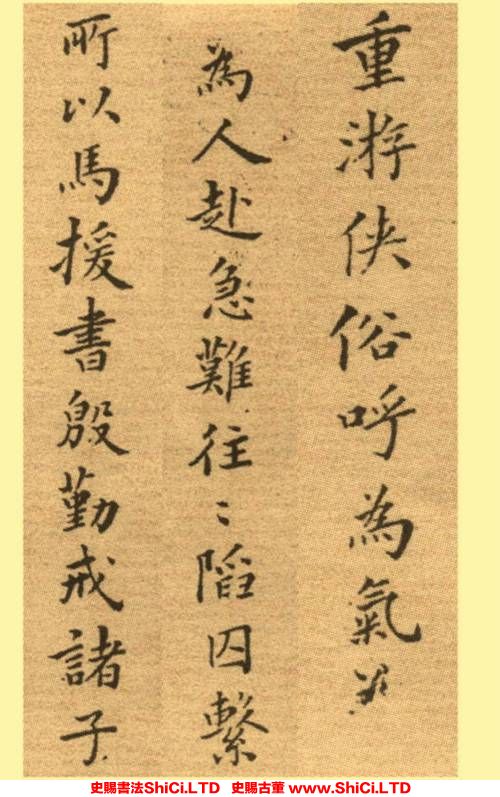 重游俠俗呼為氣義
為人赴急難往〻陷囚繫
所以馬援書殷勤戒諸子
史賜書法ShiCi.LTD 史賜古董 www.ShiCi.LTD